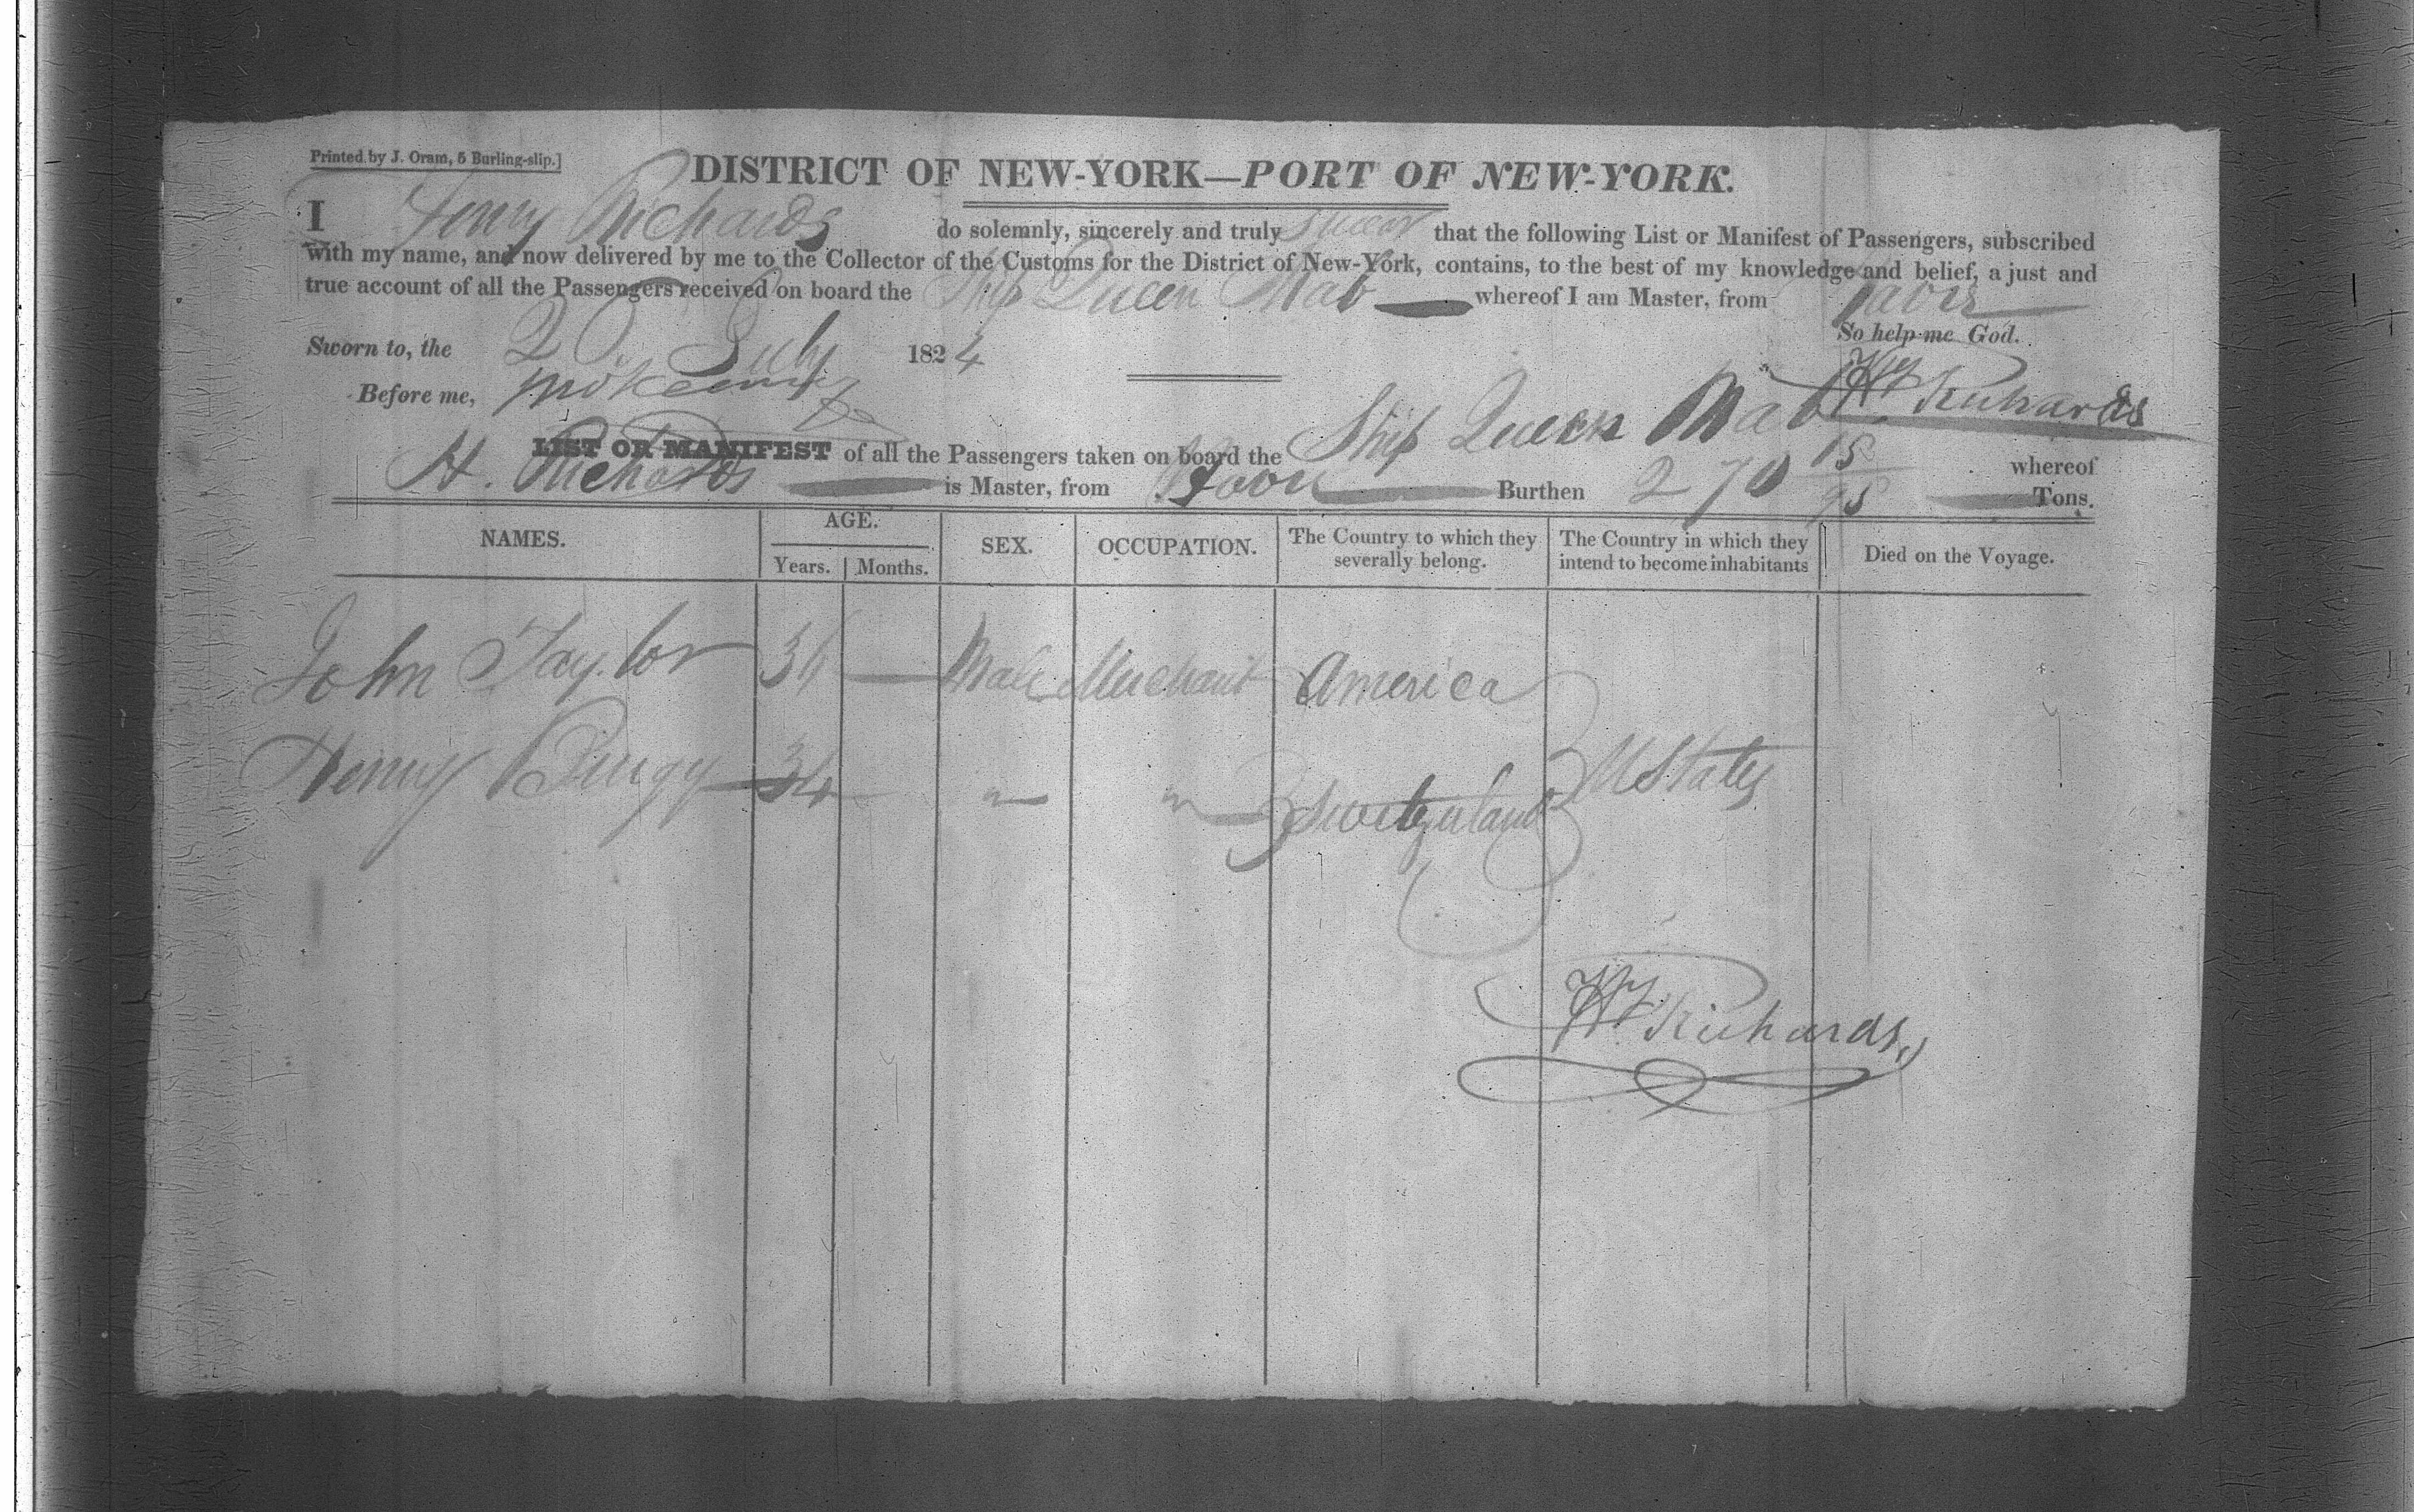 Printed by J. Oram, 5 Burling-slip.]
DISTRICT OF NEW-YORK—PORT OF NEW-YORK.
I Henry Richards do solemnly, sincerely and truly swear that the following List or Manifest of Passengers, subscribed
with my name, and now delivered by me to the Collector of the Customs for the District of New-York, contains, to the best of my knowledge and belief, a just and
true account of all the Passengers received on board the Ship Queen Mab whereof I am Master, from Havre
So help me God.
Sworn to, the 20 July 1824
Before me,
Hy Richards
LIST OR MANIFEST of all the Passengers taken on board the Ship Queen Mab whereof
H. Richards is Master, from Burthen 270 15/95 Tons.
NAMES. AGE. SEX. OCCUPATION. The Country to which they severally belong. The Country in which they intend to become inhabitants Died on the Voyage.
Years. Months.
John Taylor 36 Male Merchant America
Henry 34 " " Switzerland U States
Hy Richards